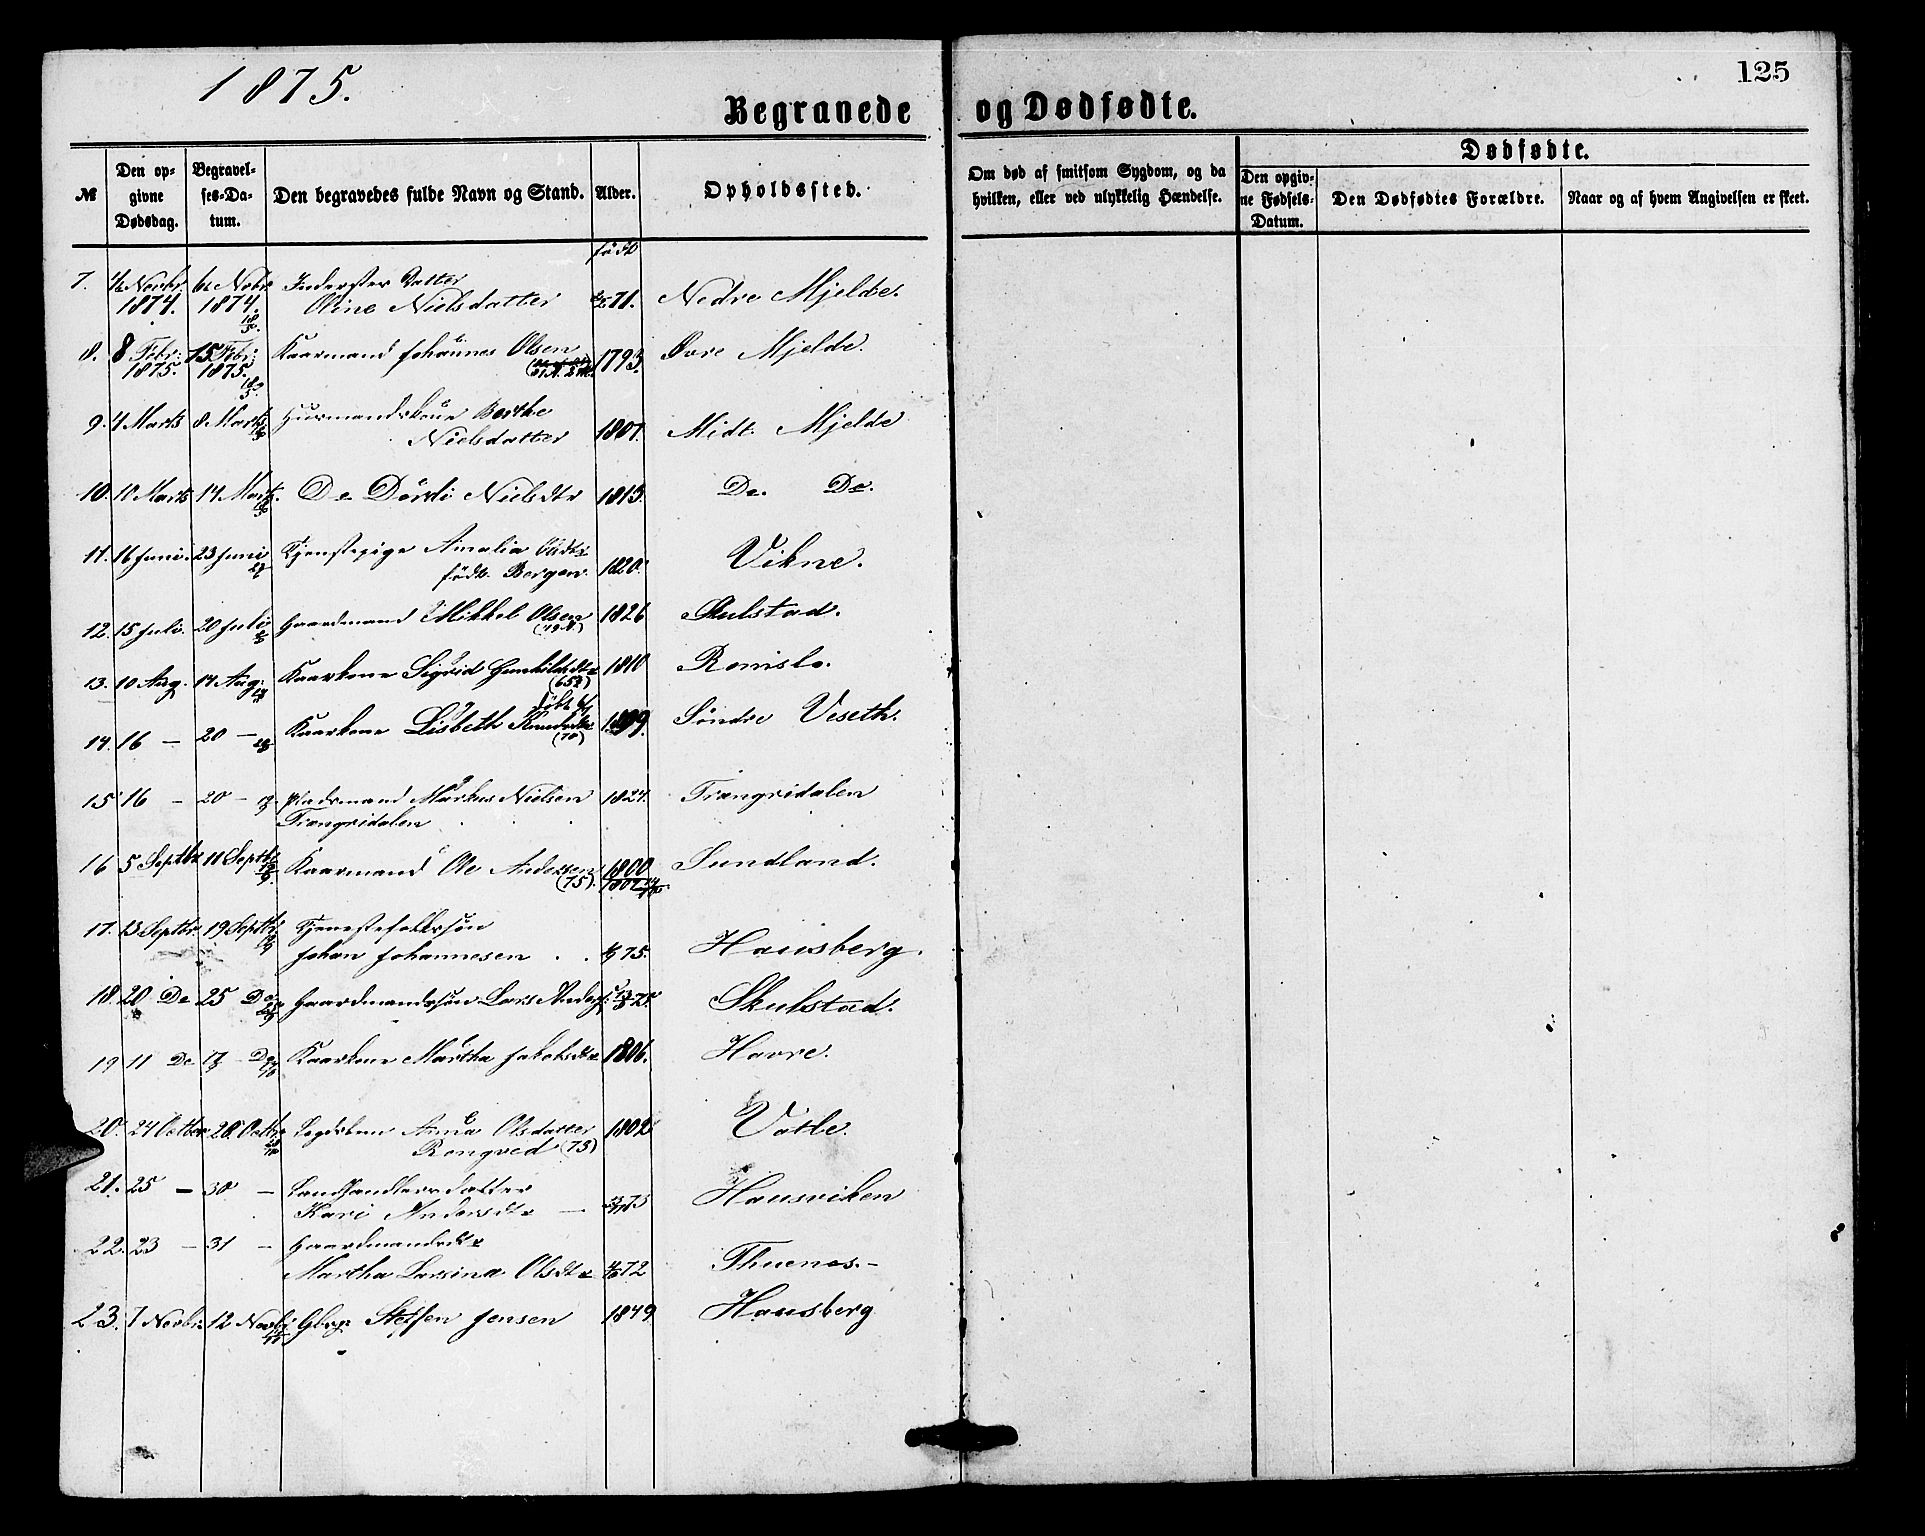 1875.
125
Begravede og Dødfødte.
№
Den op-
givne
Dødsdag.
Begravel-
ses-Da-
tum.
Den begravedes fulde Navn og Stand.
Alder.
Opholdssted.
Om død af smitsom Sygdom, og da
hvilken, eller ved ulykkelig Hændelse.
Dødfødte.
Den opgiv-
ne Fødsels-
Datum.
Den Dødfødtes Forældre.
Naar og af hvem Angivelsen er skeet.
født
7. Novbr. Novbr Inderster Datter
1874. 1874. Oline Nielsdatter 71. Nedre Mjelde.
8. 8 Febr: 15 Febr: Kaarmand Johannes Olsen 1793. Øvre Mjelde.
1875. 1875.
9. 4 Marts 8 Marts Huusmandskone Berthe
Nielsdatter 1801. Midt Mjelde
10. 10 Marts 14 Marts. Do Dordi Nielsdtr 1813. Do. Do.
11. 16 Juni. 23 Juni Tjenstepige Amalia Olsdtr
født Bergen. 1820. Vikne.
12. 15 Juli. 20 Juli Gaardmand Mikkel Olsen 1826 Skulstad.
(49)
13. 10 Aug. 14 Aug: Kaarkone Sigrid Gunhildsdtr 1810 Romslo.
(65)
14. 16 — 20 — Kaarkone Lisbeth Knudsdtr 1799. Søndre Veseth.
15 16 — 20 — Pladsmand Markus Nielsen 1824. Trangridalen
Trangridalen
16 5 Septbr 11 Septbr Kaarmand Ole Andersen 1800 Sundland.
(75)
17. 13 Septbr. 19 Septbr Tjenestefolksøn
Johan Johannesen 75. Hausberg.
18. 20 Do 25 Do Gaardmandssøn Lars Anders: Skulstad.
19 11 Do 17 Do Kaarkone Martha Jakobsdtr 1806. Havre.
20. 24 Octbr 28 Octbr Lægdslem Anna Olsdatter 1802 Votle.
Rongved (73)
21. 25 — 30 — Landhandlersdatter
Kari Andersdtr — 75 Hausviken
22. 23 — 31 — Gaardmandsdtr
Martha Larsina Olsdtr 72 Thuenes.—
23. 7 Novbr: 12 Novbr Gbr: Steffen Jensen 1849 Hausberg